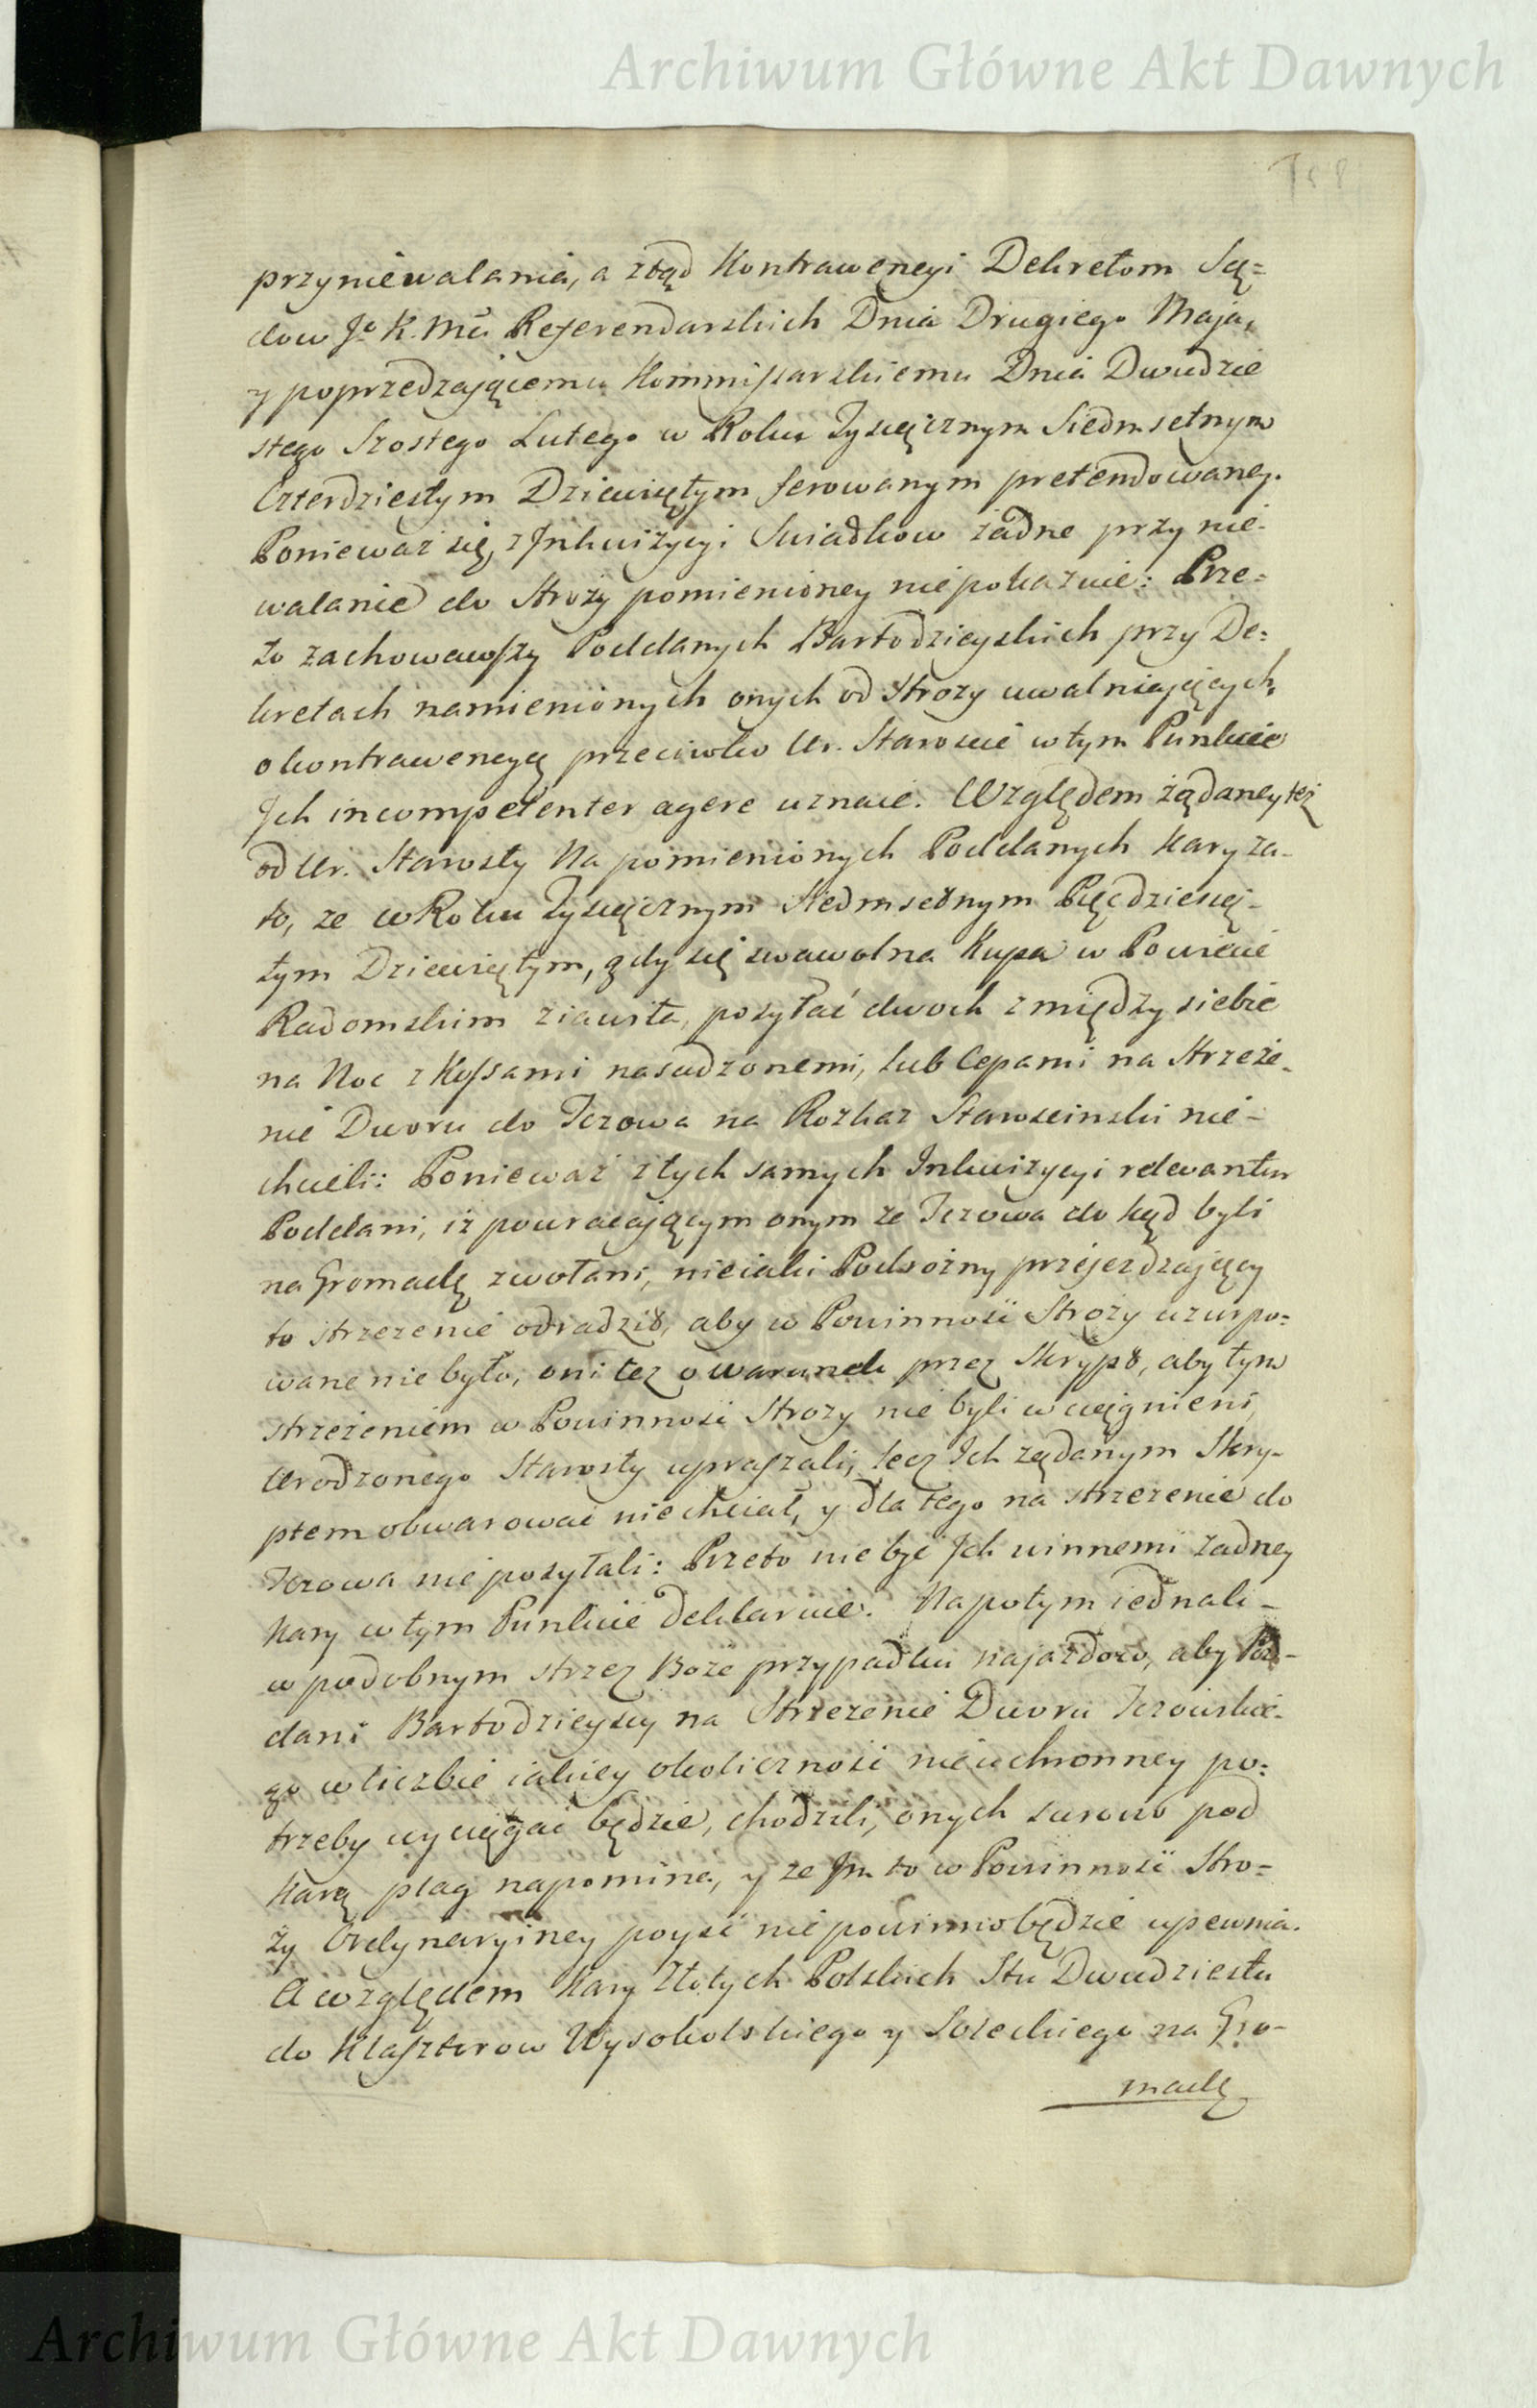 Archiwum Główne Akt Dawnych
przyniewalania, a ztąd Kontrawencyi Dekretom Są=
dow Jo K. Mci Referendarskich Dnia Drugiego Maja,
y poprzedzającemu Kommissarskiemu Dnia Dwudzie
stego Szostego Lutego w Roku Tysiącznym Siedmsetnym
Czterdziestym Dziewiętym ferowanym pretendowaney.
Ponieważ się z Inkwizycyi Swiadkow żadne przy nie-
walanie do Stroży pomienioney niepokazuie: Prze=
to zachowawszy Poddanych Bartodzieyskich przy De=
kretach namienionych onych od Strozy uwalniających,
o kontrawencyą przeciwko Ur. Staroscie w tym Punkcie
Ich incompetenter agere uznaie. Względem żądaney też
od Ur. Starosty Na pomienionych Poddanych Kary za-
to, ze w Roku Tysiącznym Siedmsetnym Pięcdziesią-
tym Dziewiętym, gdy się swawolna Kupa w Powiecie
Radomskim ziawiła, posyłać dwoch z między siebie
na Noc z Kossami nasadzonemi, lub Cepami na Strzeże-
nie Dworu do Jezowa na Rozkaz Starościnski nie-
chcieli: Ponieważ z tych samych Inkwizycyi relevantur
Poddani, iż powracającym onym ze Jezowa do kąd byli
na Gromadę zwołani, nieiaki Podwoźny przejezdzający
to strzezenie odradził, aby w Powinnosć Stroży uzurpo=
wane nie było, oni też o warunek przez Skrypt, aby tym
strzeżeniem w Powinnosć Strozy nie byli w ciągnieni,
Urodzonego Starosty upraszali, lecz Ich żądanym Skry-
ptem obwarować niechciał, y dla tego na strzezenie do
Jezowa nie posyłali: Przeto nie być Ich winnemi żadney
Kary w tym Punkcie deklaruie. Napotym iednak -
w podobnym strzez Boże przypadku najazdow, aby Pod-
dani Bartodzieyscy na Strzezenie Dworu Jezowskie-
go w liczbie iakiey okoliczność nieuchronney po=
trzeby wyciągać będzie, chodzili, onych surowo pod
Karą plag napomina, y ze Im to w Powinnosć Stro=
ży Ordynaryiney poysć nie powinno będzie upewnia.
A względem Kary Złotych Polskich Stu Dwudziestu
do Klasztorow Wysokolskiego y Soleckiego na Gro-
madę
Archiwum Główne Akt Dawnych